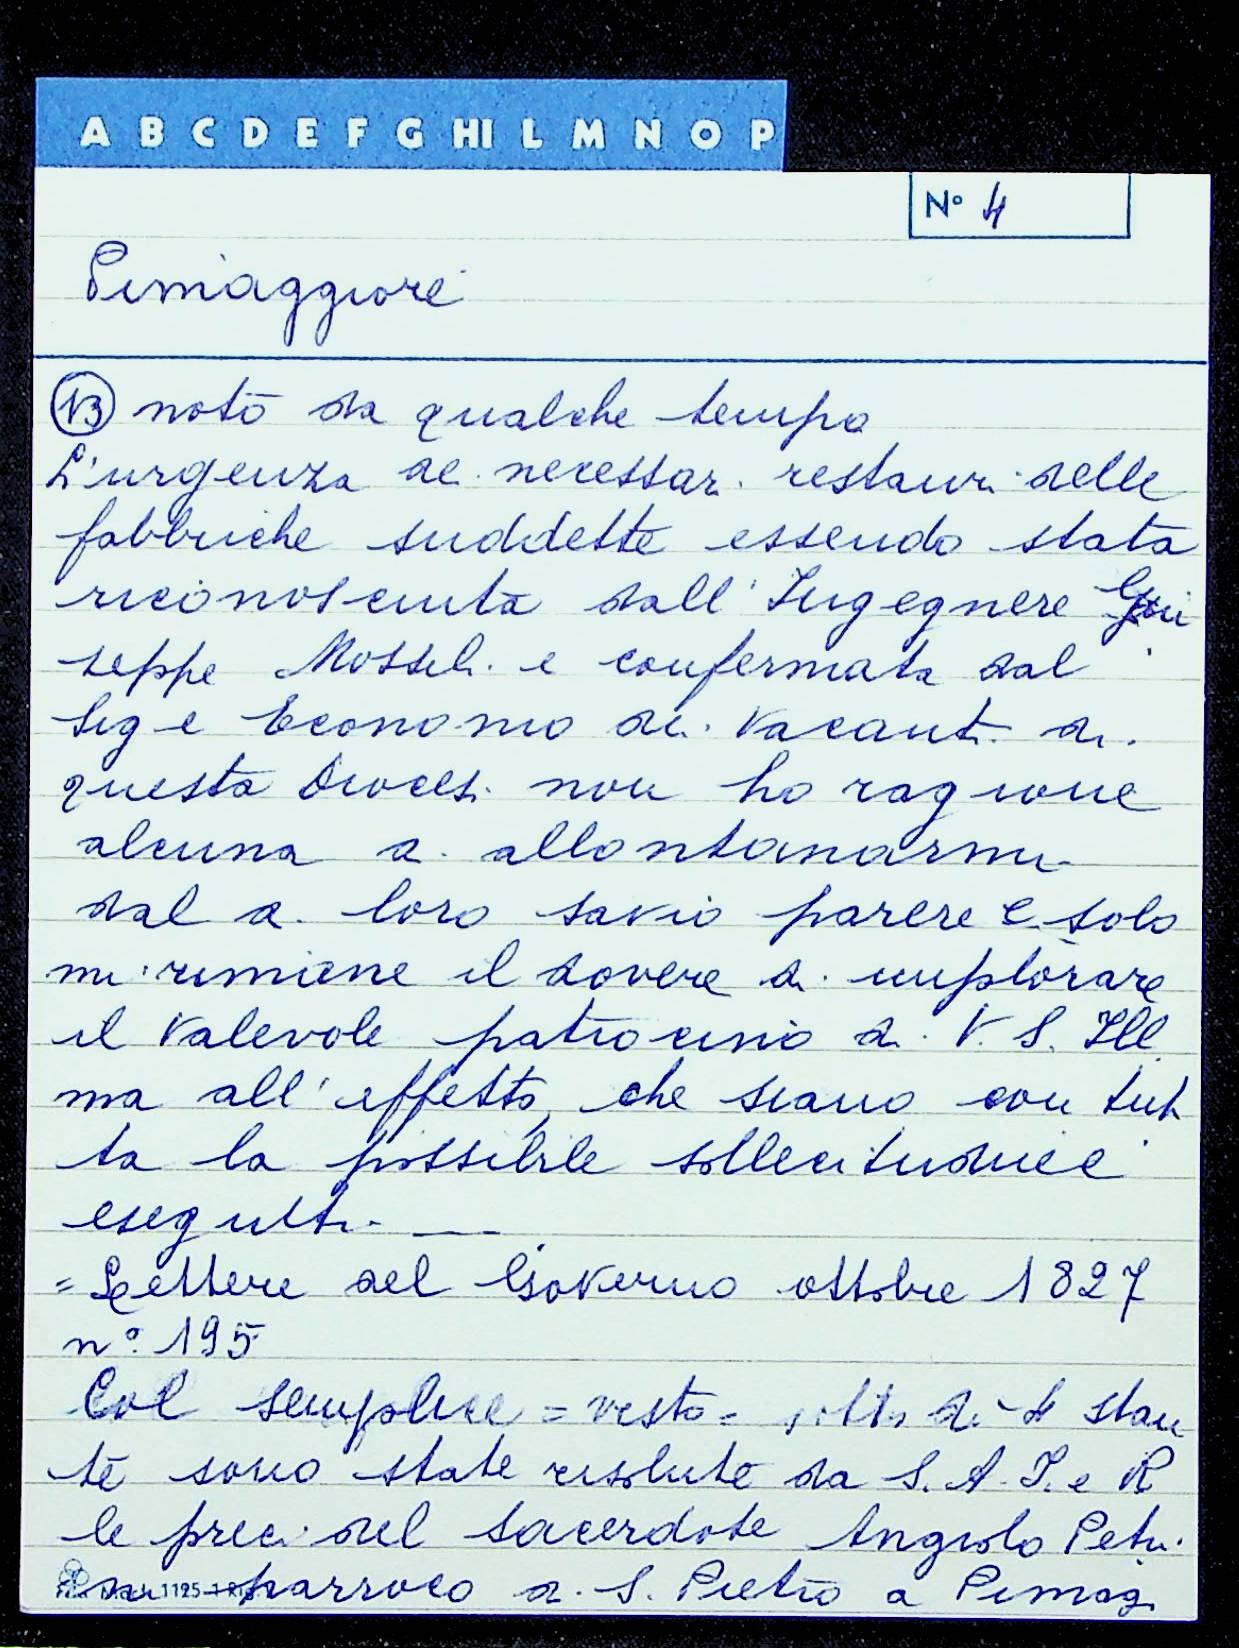 A B C D E F G HI L M N O P
N° 4
Pimaggiore
13 noto da qualche tempo
L'urgenza de. necessar. restauri delle
fabbriche suddette essendo stata
riconosciuta dall'Ingegnere Giu
seppe Mosseli. e confermata dal
Sig e Economo dei. Vacanti. di.
questa Diocesi. non ho ragione
alcuna a. allontanarmi
dal a. loro savio parere e solo
mi rimane il dovere di implorare
il valevole patrocinio di. V. S. Ill
ma all'effetto, che siano con tut
ta la possibile sollecitudine
eseguiti. —
= Lettere del Governo ottobre 1827
n°. 195
Col semplice = visto = sotto di 4 stan
te sono state risolute da S. A. I. e R
le preci del sacerdote Angiolo Petri.
ni parroco di. S. Pietro a Pimag.
1125